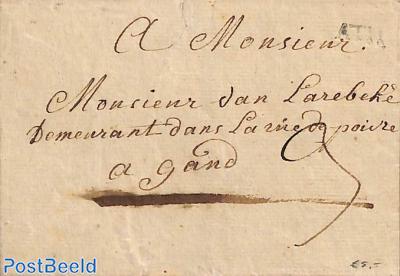 A Monsieur.
Monsieur Van Larebeke
Demeurant dans La rue de poivre
a gand
3
PostBeeld